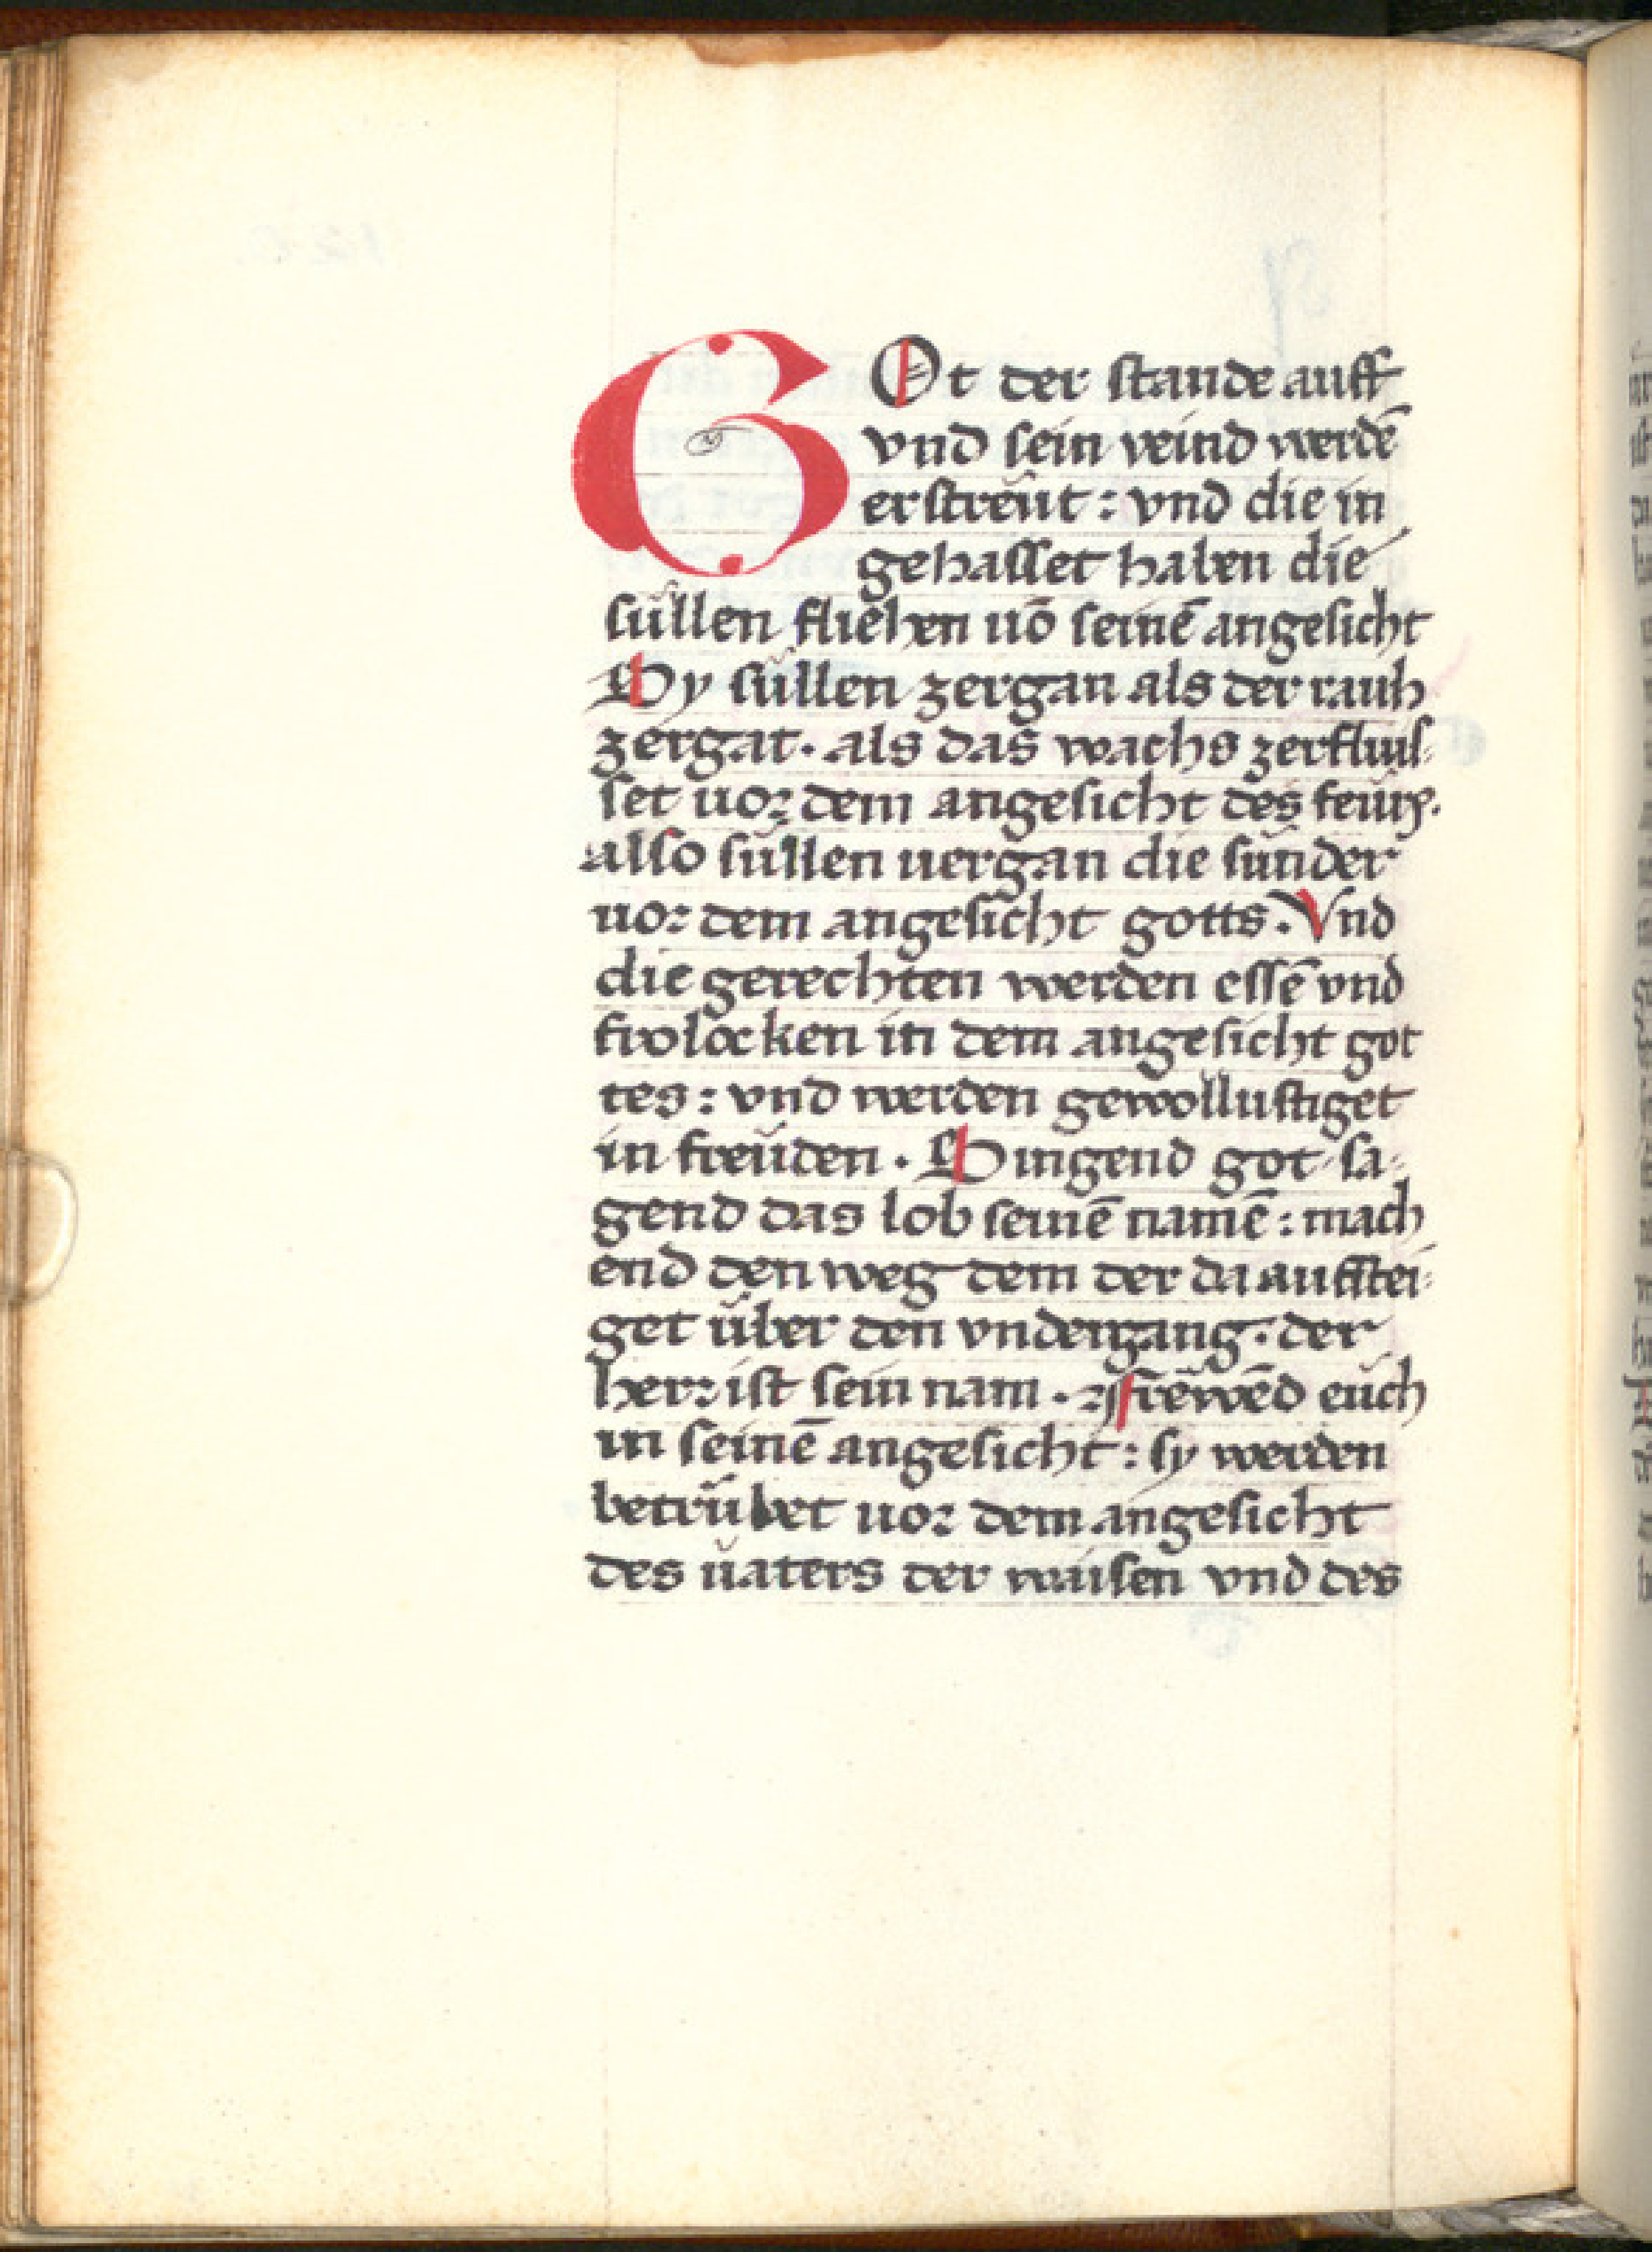 GOt der stande auff
vnd sein veind werdē
erstreüt : vnd die in
gehasset haben die
süllen fliehen uō seinē angesicht
Sy süllen zergan als der rauh
zergat · als das wachs zerflius-
set uor dem angesicht des feürs ·
also süllen uergan die sünder
uor dem angesicht gotts · Vnd
die gerechten werden essē vnd
frolocken in dem angesicht got
tes : vnd werden gewollustiget
in freüden · Singend got sa-
gend das lob seinē namē : mach
end den weg dem der da auffstei-
get über den vndergang · der
herr ist sein nam · Frēwēd eüch
in seinē angesicht : sy werden
betrübet uor dem angesicht
des uaters der waisen vnd des